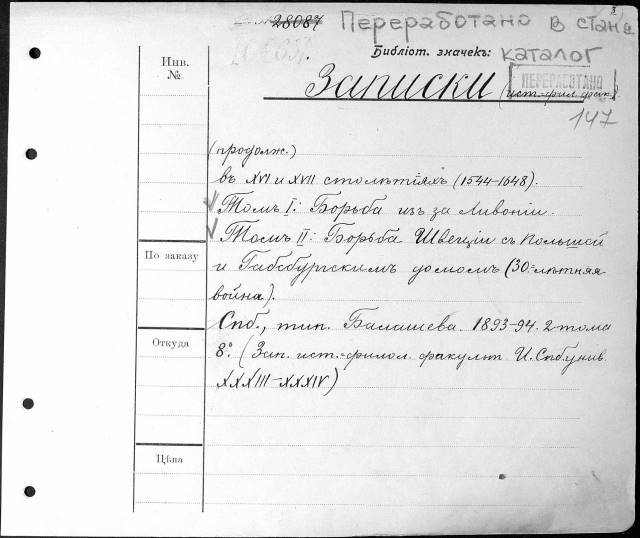 28087 Переработано в станд.
Библіот. значекъ: каталог
Инв. №
ПЕРЕРАБОТАНО
Записки (ист.-фил. фак.)
147
(продолж.)
въ XVI и XVII столѣтіяхъ (1544-1648).
Томъ I: Борьба изъ за Ливоніи.
Томъ II: Борьба Швеціи съ Польшей
По заказу
и Габсбургскимъ домомъ (30=лѣтняя
война).
Спб., тип. Балашева. 1893-94. 2 тома
Откуда
8º. (Зап. ист.-филол. факульт. И. Спб. унив.
XXXIII-XXXIV)
Цѣна